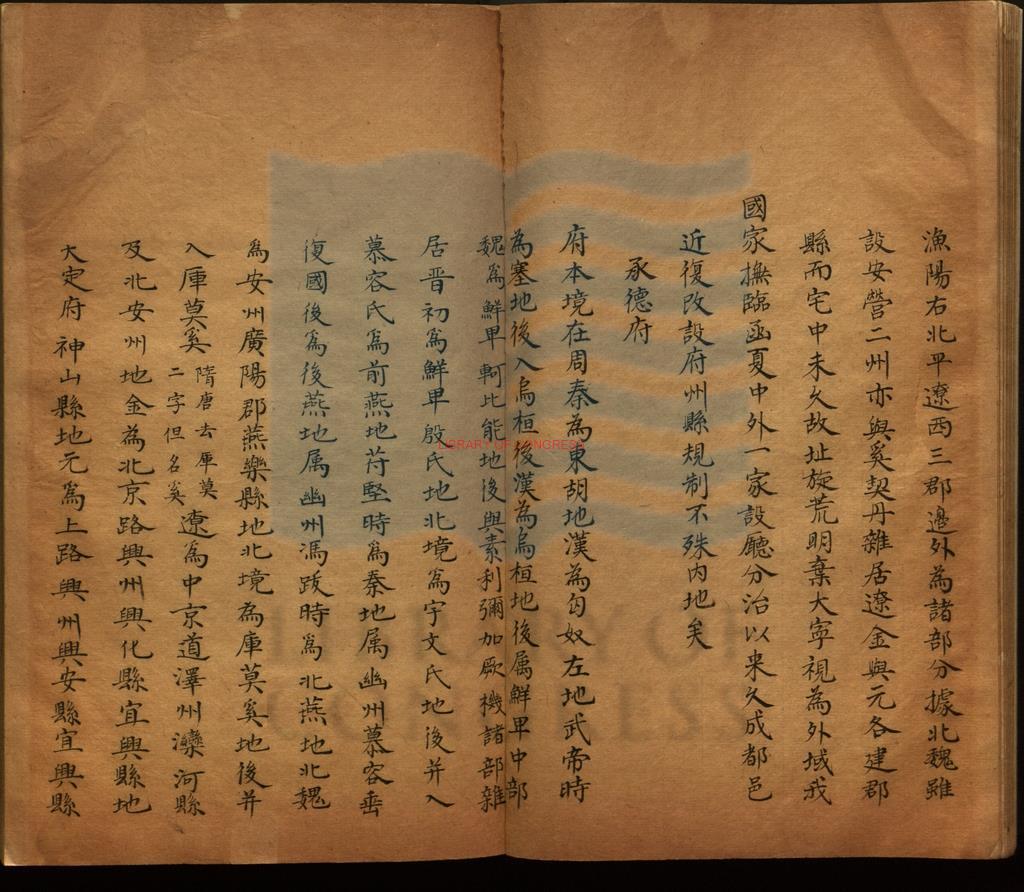 漁陽右北平遼西三郡邊外為諸部分據北魏雖
設安營二州亦與奚契丹雜居遼金與元各建郡
縣而宅中未久故址旋荒明棄大寧視為外域我
國家撫臨函夏中外一家設廳分治以来久成都邑
近復改設府州縣規制不殊内地矣
承德府
府本境在周秦為東胡地漢為匈奴左地武帝時
為塞地後入烏桓後漢為烏桓地後属鮮卑中部
魏為鮮卑軻比能地後與素利彌加厥機諸部雜
居晋初為鮮卑殷氏地北境為宇文氏地後并入
慕容氏為前燕地苻堅時為秦地属幽州慕容垂
復國後為後燕地属幽州馮跋時為北燕地北魏
為安州廣陽郡燕樂縣地北境為庫莫奚地後并
入庫莫奚隋唐去庫莫二字但名奚遼為中京道澤州灤河縣
及北安州地金為北京路興州興化縣宜興縣地
大定府神山縣地元為上路興州興安縣宜興縣
LIBRARY OF CONGRESS